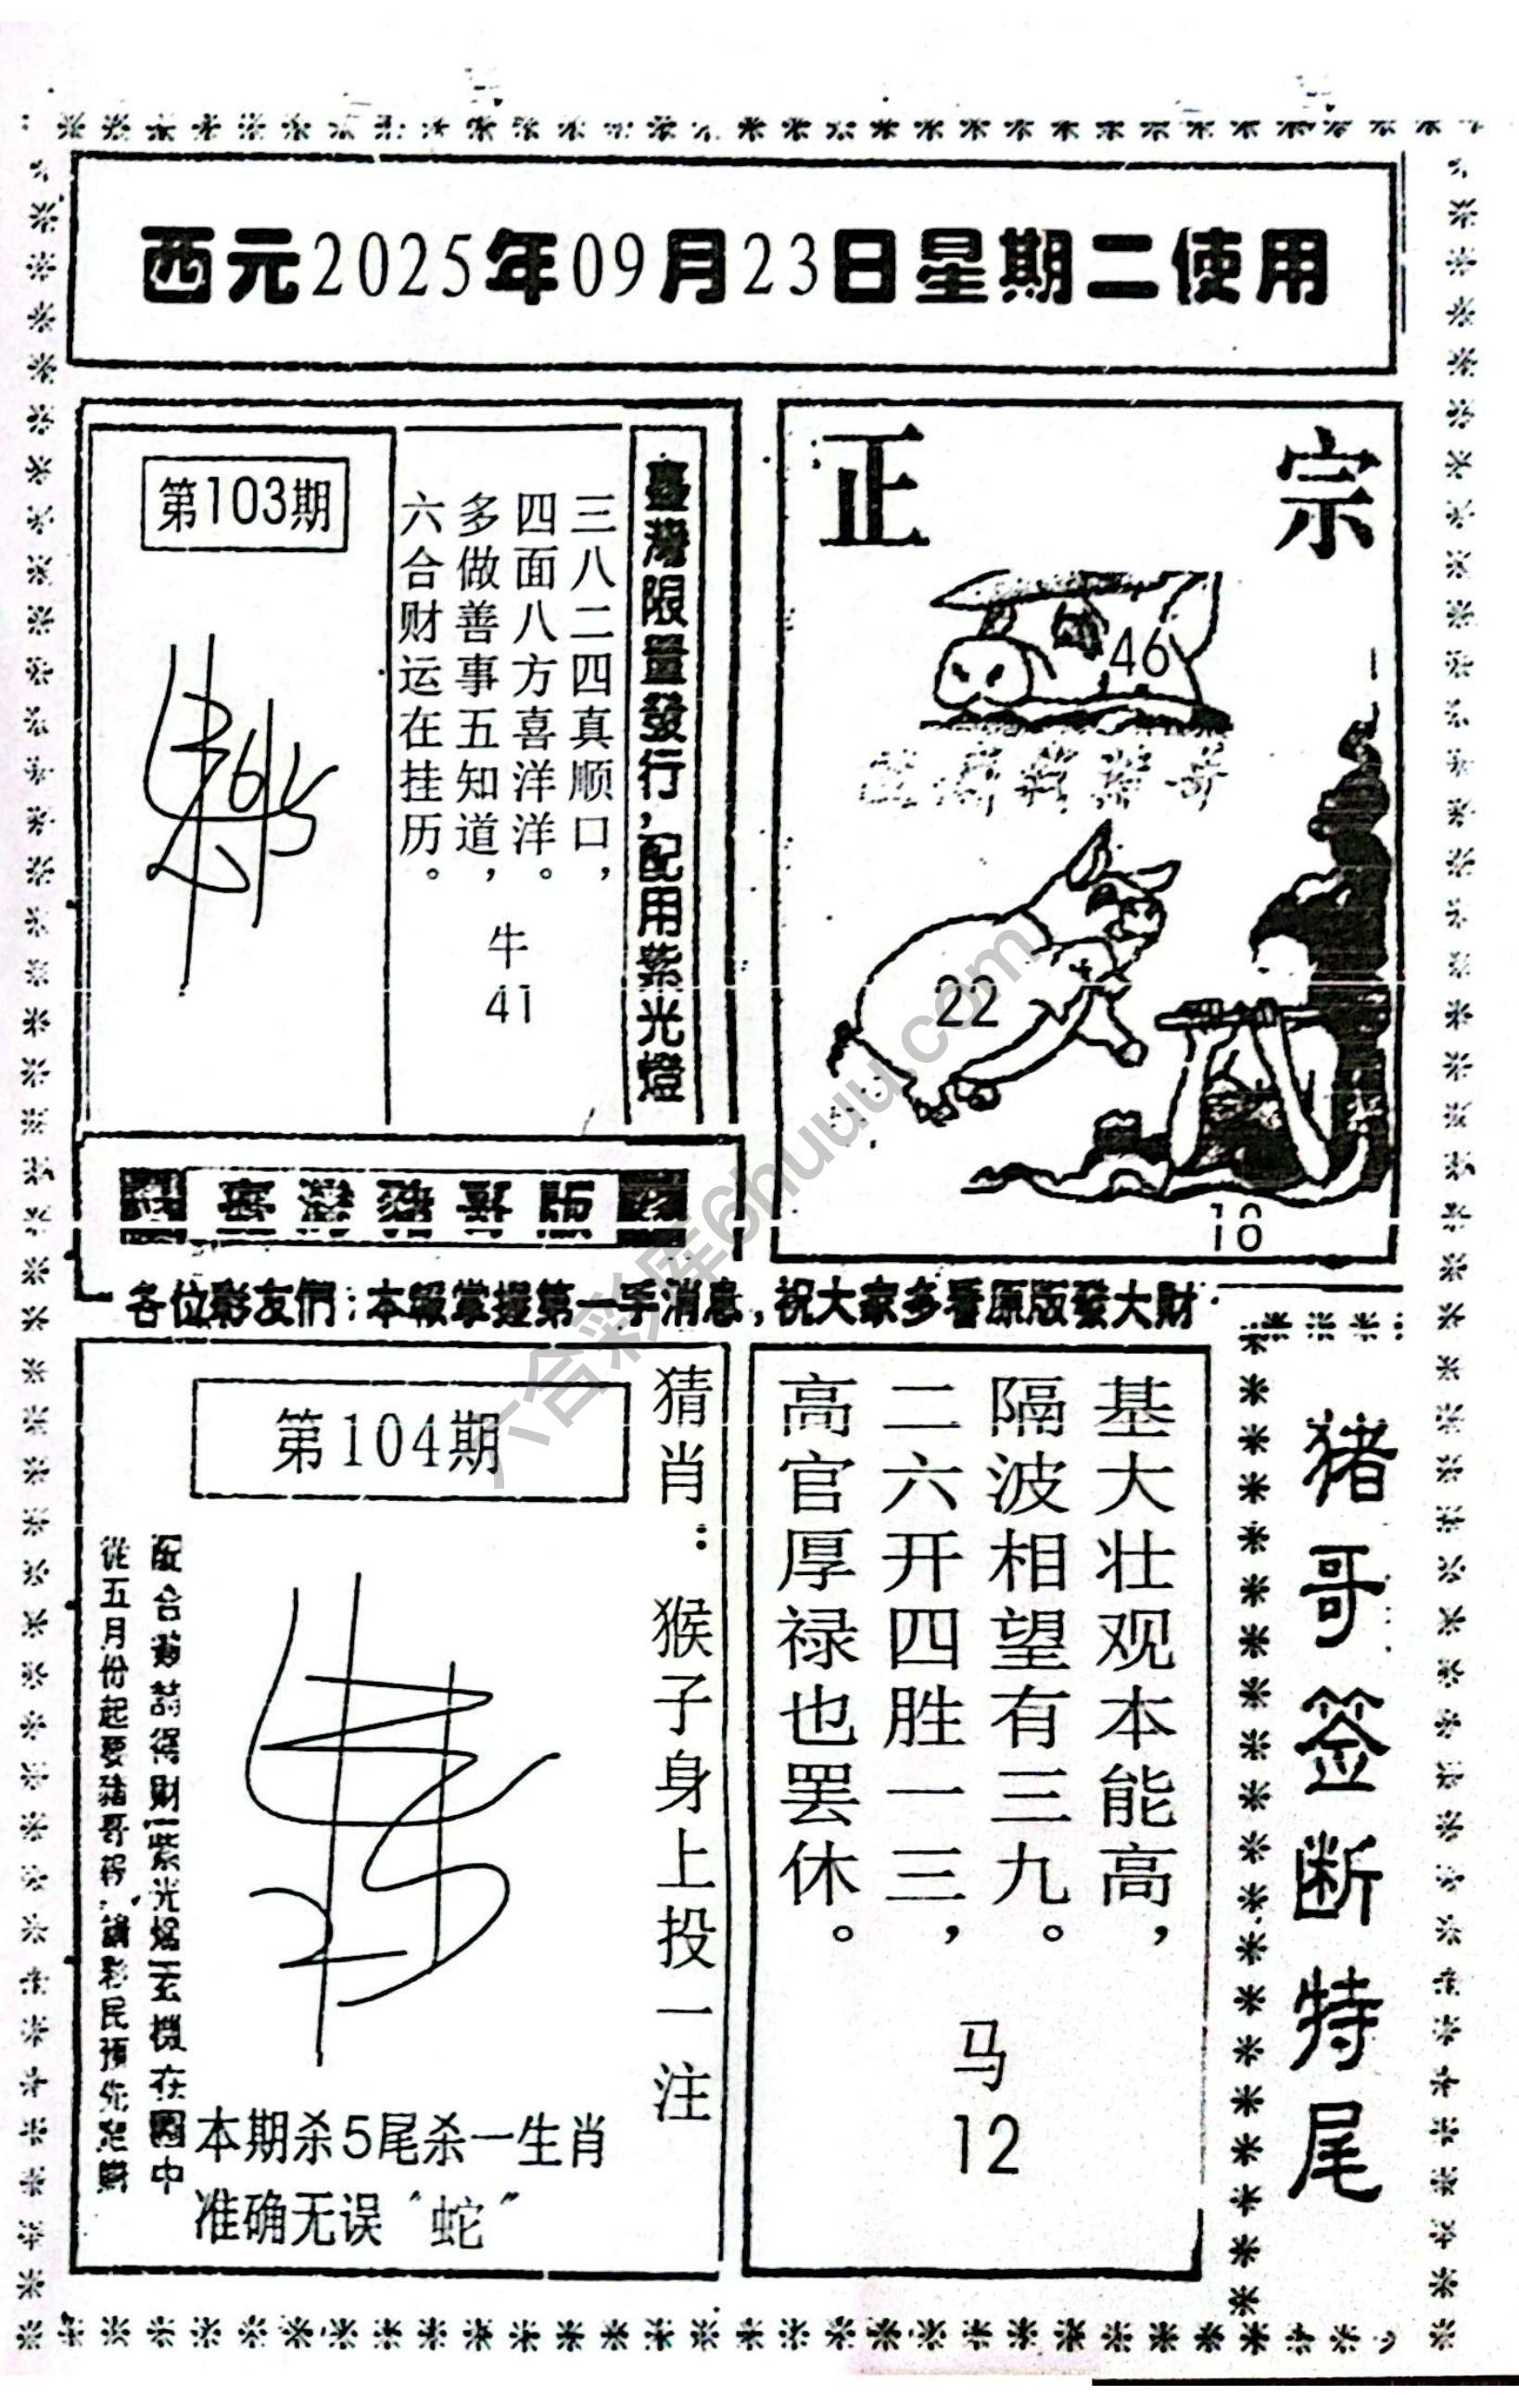 西元2025年09月23日星期二使用
正宗
46
22
18
臺灣限量發行,配用紫光燈
三八二四真顺口,
四面八方喜洋洋。
多做善事五知道,
六合财运在挂历。
牛
41
第103期
臺灣豬哥版
各位彩友們:本報掌握第一手消息,祝大家多看原版發大財
猪哥签断特尾
基大壮观本能高,
隔波相望有三九。
二六开四胜一三,
高官厚禄也罢休。
马
12
猜肖:猴子身上投一注
第104期
本期杀5尾杀一生肖
准确无误"蛇"
六合彩库6huuu.com